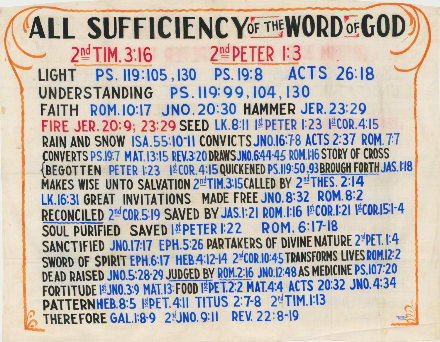 ALL SUFFICIENCY OF THE WORD OF GOD
2nd TIM. 3:16 2nd PETER 1:3
LIGHT PS. 119:105, 130 PS. 19:8 ACTS 26:18
UNDERSTANDING PS. 119:99, 104, 130
FAITH ROM. 10:17 JNO. 20:30 HAMMER JER. 23:29
FIRE JER. 20:9; 23:29 SEED LK. 8:11 1st PETER 1:23 1st COR. 4:15
RAIN AND SNOW ISA. 55:10-11 CONVICTS JNO. 16:7-8 ACTS 2:37 ROM. 7:7
CONVERTS PS. 19:7 MAT. 13:15 REV. 3:20 DRAWS JNO. 6:44-45 ROM. 1:16 STORY OF CROSS
(BEGOTTEN PETER 1:23 1st COR. 4:15 QUICKENED PS. 119:50, 93 BROUGH FORTH JAS. 1:18
MAKES WISE UNTO SALVATION 2nd TIM. 3:15 CALLED BY 2nd THES. 2:14
LK. 16:31 GREAT INVITATIONS MADE FREE JNO. 8:32 ROM. 8:2
RECONCILED 2nd COR. 5:19 SAVED BY JAS. 1:21 ROM. 1:16 1st COR. 1:21 1st COR. 15:1-4
SOUL PURIFIED SAVED 1st PETER 1:22 ROM. 6:17-18
SANCTIFIED JNO. 17:17 EPH. 5:26 PARTAKERS OF DIVINE NATURE 2nd PET. 1:4
SWORD OF SPIRIT EPH. 6:17 HEB. 4:12-14 2nd COR. 10:45 TRANSFORMS LIVES ROM. 12:2
DEAD RAISED JNO. 5:28-29 JUDGED BY ROM. 2:16 JNO. 12:48 AS MEDICINE PS. 107:20
FORTITUDE 1st JNO. 3:9 MAT. 13: FOOD 1st PET. 2:2 MAT. 4:4 ACTS 20:32 JNO. 4:34
PATTERN HEB. 8:5 1st PET. 4:11 TITUS 2:7-8 2nd TIM. 1:13
THEREFORE GAL. 1:8-9 2nd JNO. 9:11 REV. 22:8-19